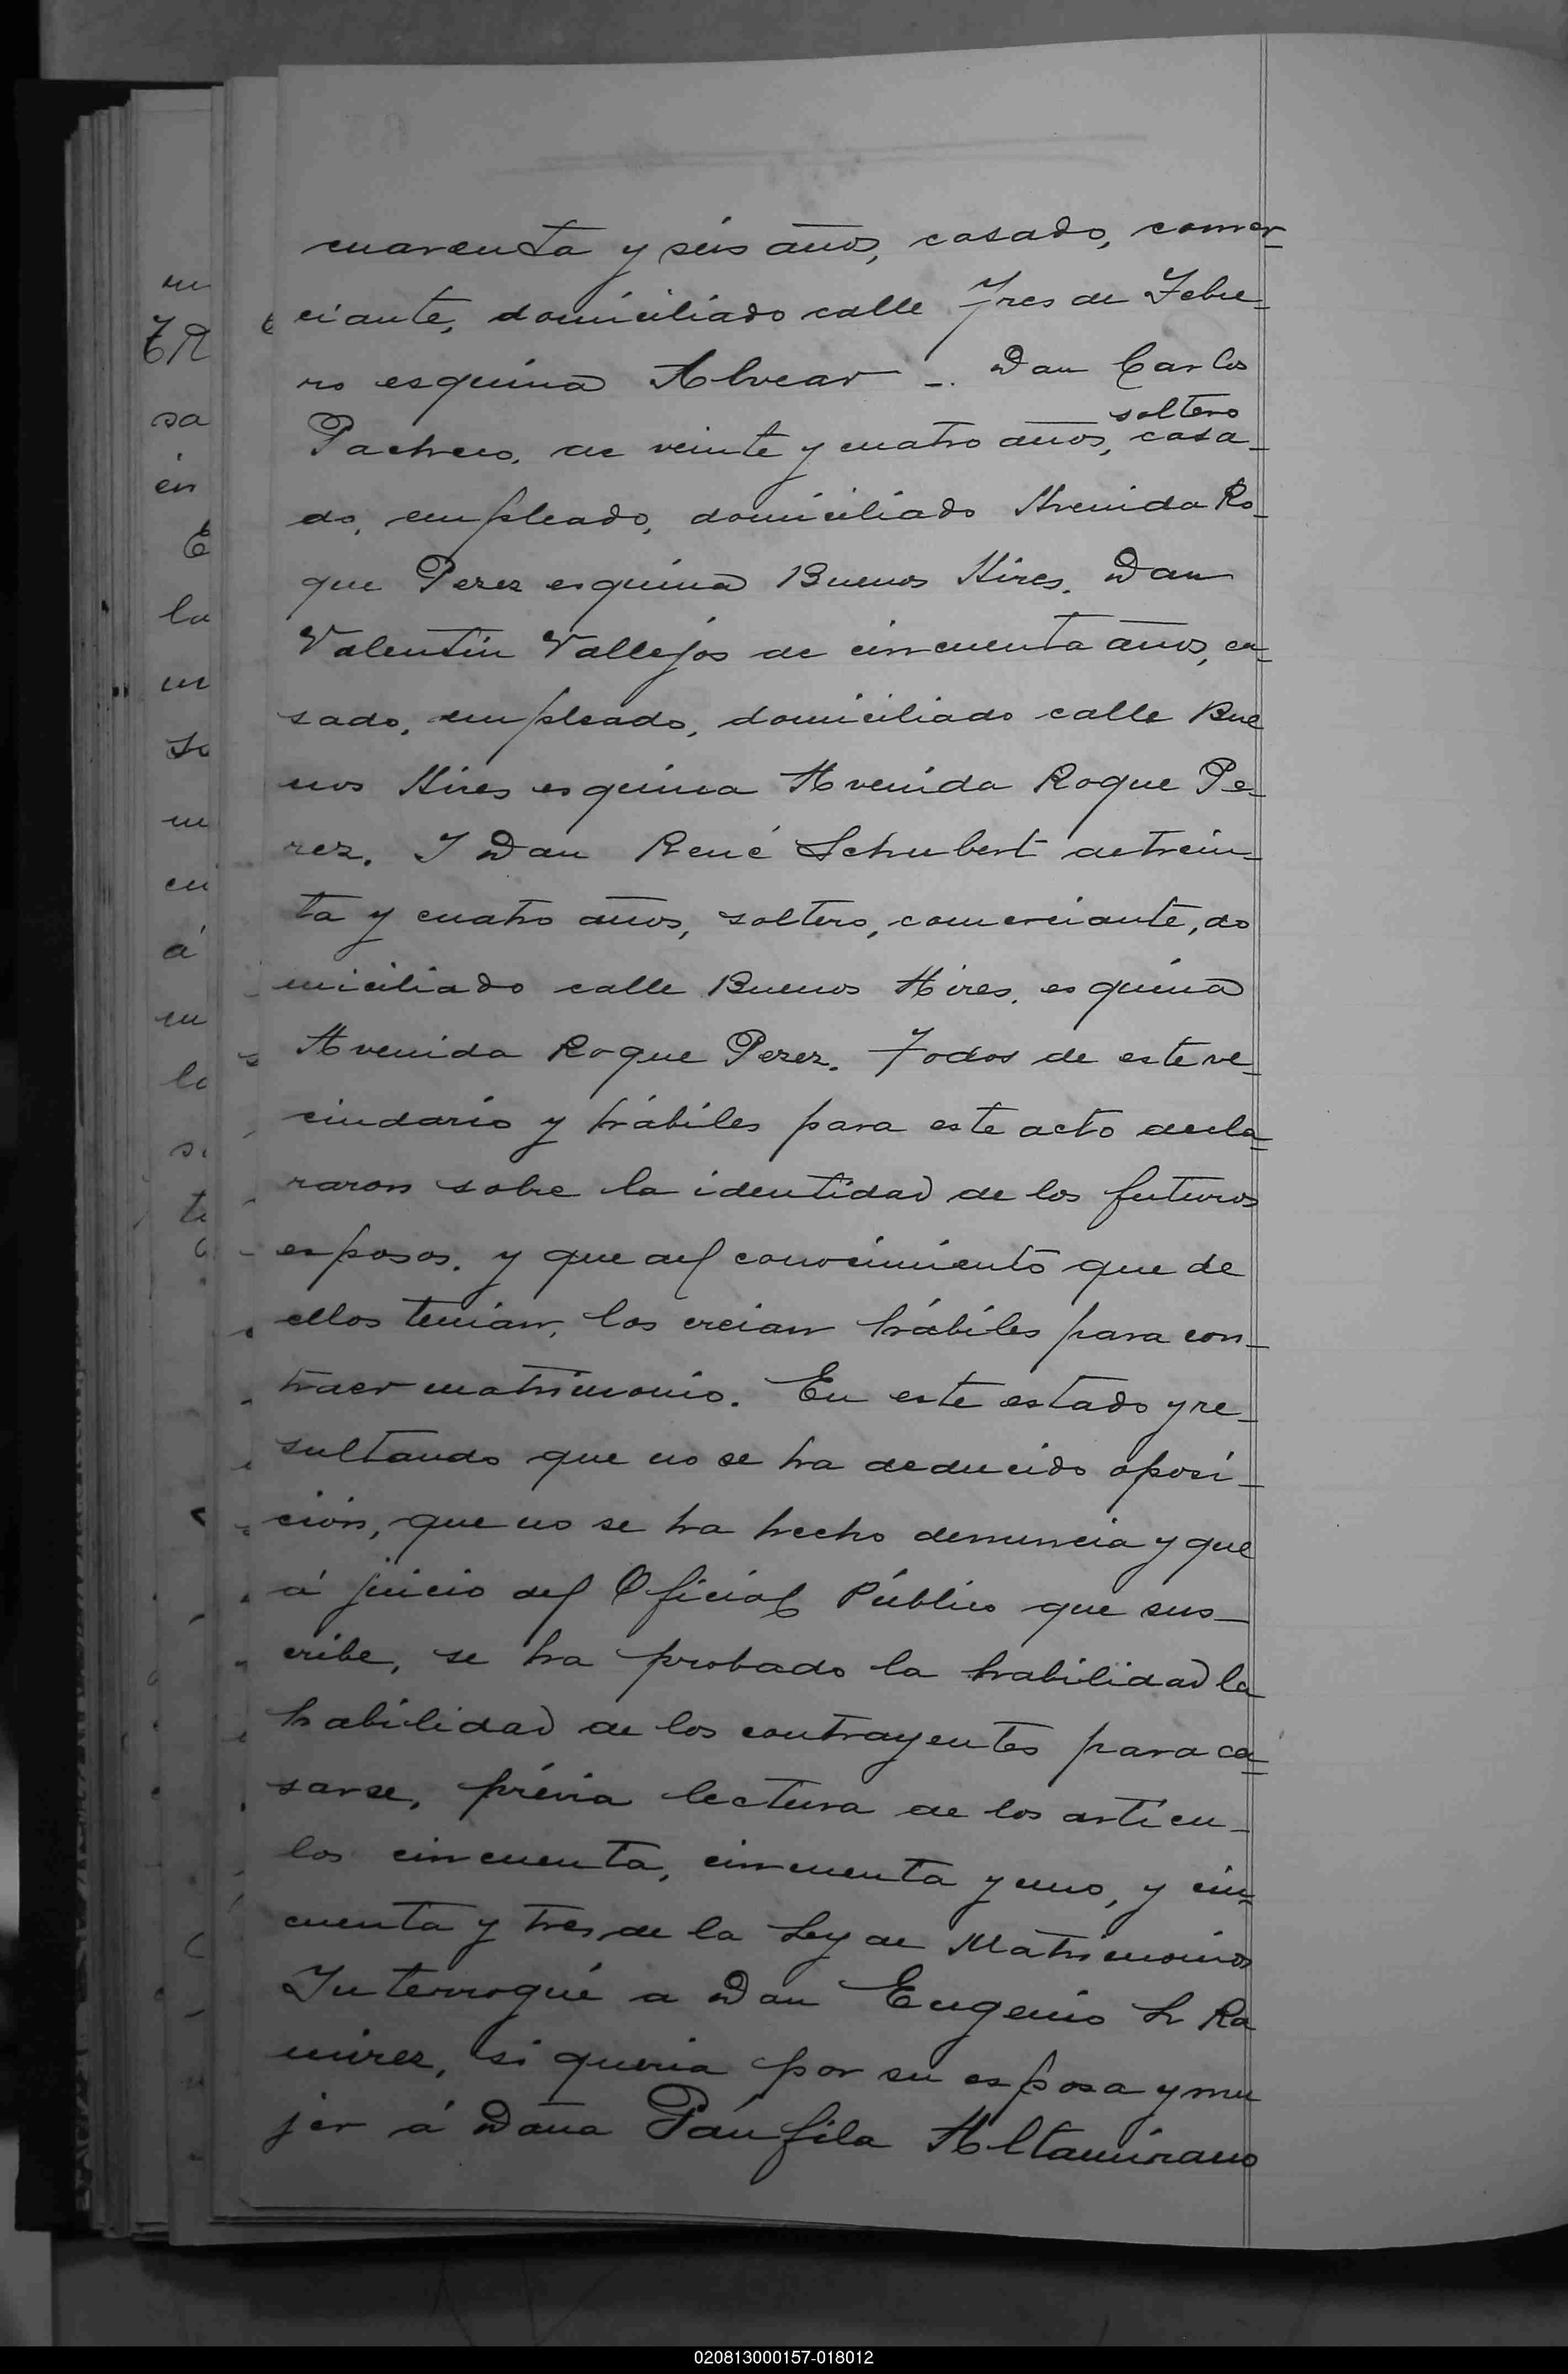 cuarenta y séis años, casado, comer-
ciante, domiciliado calle Tres de Febre-
ro esquina Alvear -. Don Carlos
soltero
Pacheco, de veinte y cuatro años, casa-
do, empleado, domiciliado Avenida Ro-
que Perez esquina Buenos Aires. Don
Valentin Vallejos de cincuenta años, ca-
sado, empleado, domiciliado calle Bue
nos Aires esquina Avenida Roque Pe-
rez. I Don René Schubert de trein-
ta y cuatro años, soltero, comerciante, do
miciliado calle Buenos Aires, esquina
Avenida Roque Perez. Todos de este ve-
cindario y hábiles para este acto decla-
raron sobre la identidad de los futuros
esposos. y que del conocimiento que de
ellos tenian, los creian hábiles para con-
traer matrimonio. En este estado y re-
sultando que no se ha deducido oposi-
ción, que no se ha hecho denuncia y que
á juicio del Oficial Público que sus-
cribe, se ha probado la habilidad la
habilidad de los contrayentes para ca-
sarse, prévia lectura de los artícu-
los cincuenta, cincuenta y uno, y cin-
cuenta y tres de la Ley de Matrimonios
Interrogué a Don Eugenio L Ra
mirez, si queria por su esposa y mu
jer á Doña Pánfila Altamirano
020813000157-018012